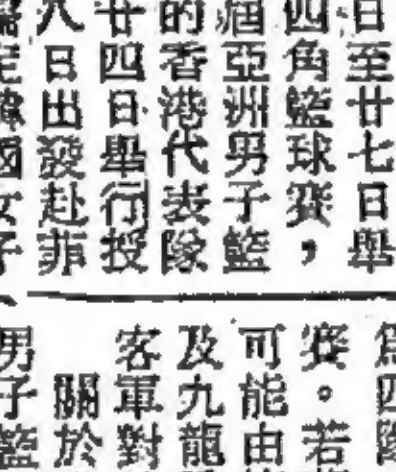 日至廿七日舉
四角籃球賽，
屆亞洲男子籃
的香港代表隊
廿四日舉行授
八日出發赴菲
國女子
爲四隊
賽。若
可能由
及九龍
客軍對
關於
男子籃